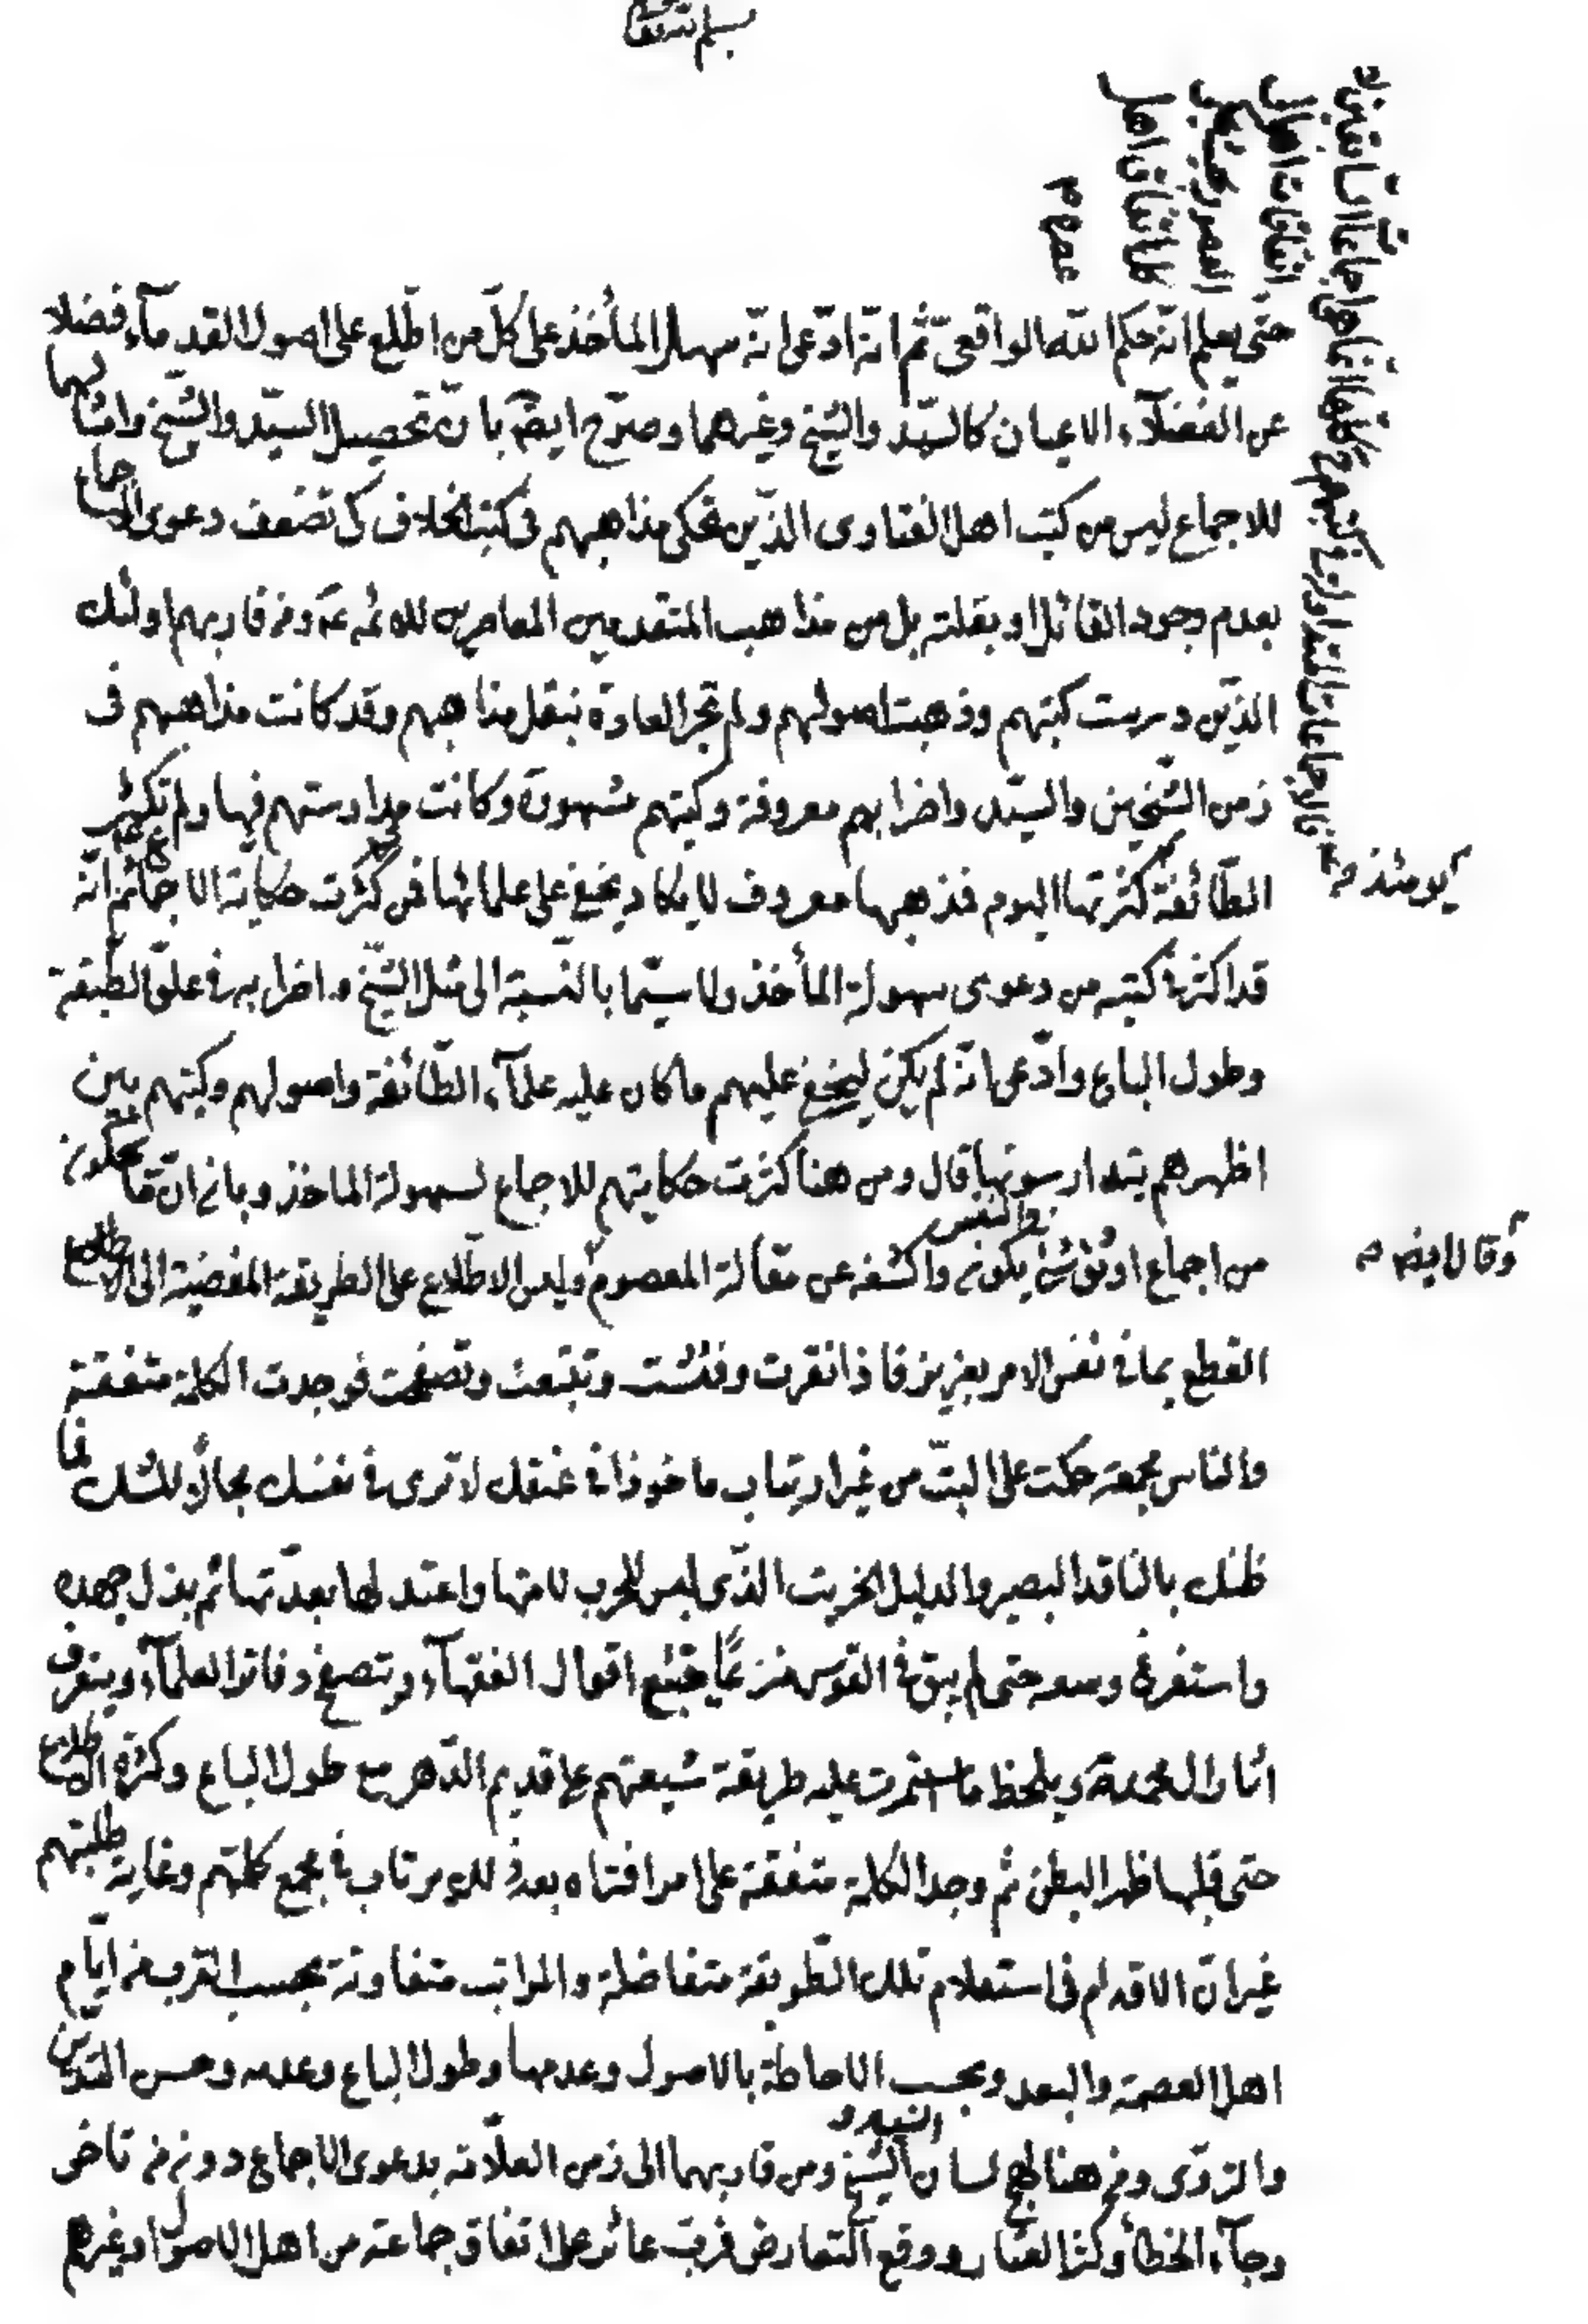 حتّى يعلم انّه حكم الله الواقعىّ ثم انّه ادّعى انّه سهل المأخذ على كلّ من اطّلع على اصول القدمآء فضلا
عن الفضلآء الاعيان كالسيّد والشيخ وغيرهما وصرّح ايضا بانّ تحصيل السيّد والشيخ وامثالهما
للاجماع ليس من كتب اهل الفتاوى الذّين تحكى مذاهبهم فى كتب الخلاف كى تضعف دعوى الاجماع
بعدم وجود القائل او بقلته بل من مذاهب المتقدمين المعاصرين للائمه ع ومن قاربهم اولئك
الذّين درست كتبهم وذهبت اصولهم ولم تجر العادة بنقل مذاهبهم وقد كانت مذاهبهم فى
زمن الشّيخين والسيّد واضرابهم معروفة وكتبهم مشهورة وكانت مدارستهم فيها ولم تكثر
الطّائفة كثرتها اليوم فمذهبها معروف لا يكاد يخفى على علمائها فمن ثم كثرت حكاية الاجماع ثم انّه
قد اكثر فى كتبه من دعوى سهولة المأخذ ولا سيّما بالنّسبة الى مثل الشّيخ واضرابه فى علوّ الطّبقة
وطول الباع وادّعى انّه لم يكن ليخفى عليهم ما كان عليه علمآء الطّائفة واصولهم وكتبهم بين
اظهرهم يتدارسونها قال ومن هنا كثرت حكايتهم للاجماع لسهولة الماخذ وبانه انّ ما يحكونه
من اجماع اوثق شئ يكون واكشفه عن مقالة المعصوم وليس الاطّلاع على الطريقة المفضية الى الاطلاع
والنفس
وقال ايضا
القطع بما فى نفس الامر بعزيز فاذا نقرت وفتّشت وتتبعت وتصفحت فوجدت الكلمة متفقة
والناس مجمعة حكمت على البتّ من غير ارتياب ماخوذا فى عنقك لا ترى فى نفسك مجالا للشك فما
ظنك بالناقد البصير والدليل الخريت الذّى لبس للحرب لامتها واعتد لها بعدّتها ثم بذل جهده
واستفرغ وسعه حتى لم يبق فى القوس منزعا يتتبع اقوال الفقهآء ويتصفح دفاتر العلمآء ويتعرف
اثار ال محمد ويلحظ ما استمرت عليه طريقة شيعتهم على قديم الدّهر مع طول الباع وكثرة الاطلاع
حتى قلبها ظهرا لبطن ثم وجد الكلمة متفقة على امر افتراه بعد ذلك يرتاب فى مجمع كلمتهم وغاية طلبتهم
غير انّ الاقدام فى استعلام تلك الطّريقة متفاضلة والمراتب متفاوتة بحسب القرب من ايّام
اهل العصمة والبعد وبحسب الاحاطة بالاصول وعدمها وطول الباع وعدمه وحسن التدبّر
السيد و
والتروّى ومن هنا لهج لسان الشّيخ ومن قاربهما الى زمن العلّامة بدعوى الاجماع دون من تاخر
وجآء الخطأ وكثر العثار ووقع التعارض فربّ عاثر على اتفاق جماعة من اهل الاصول او غيرهم